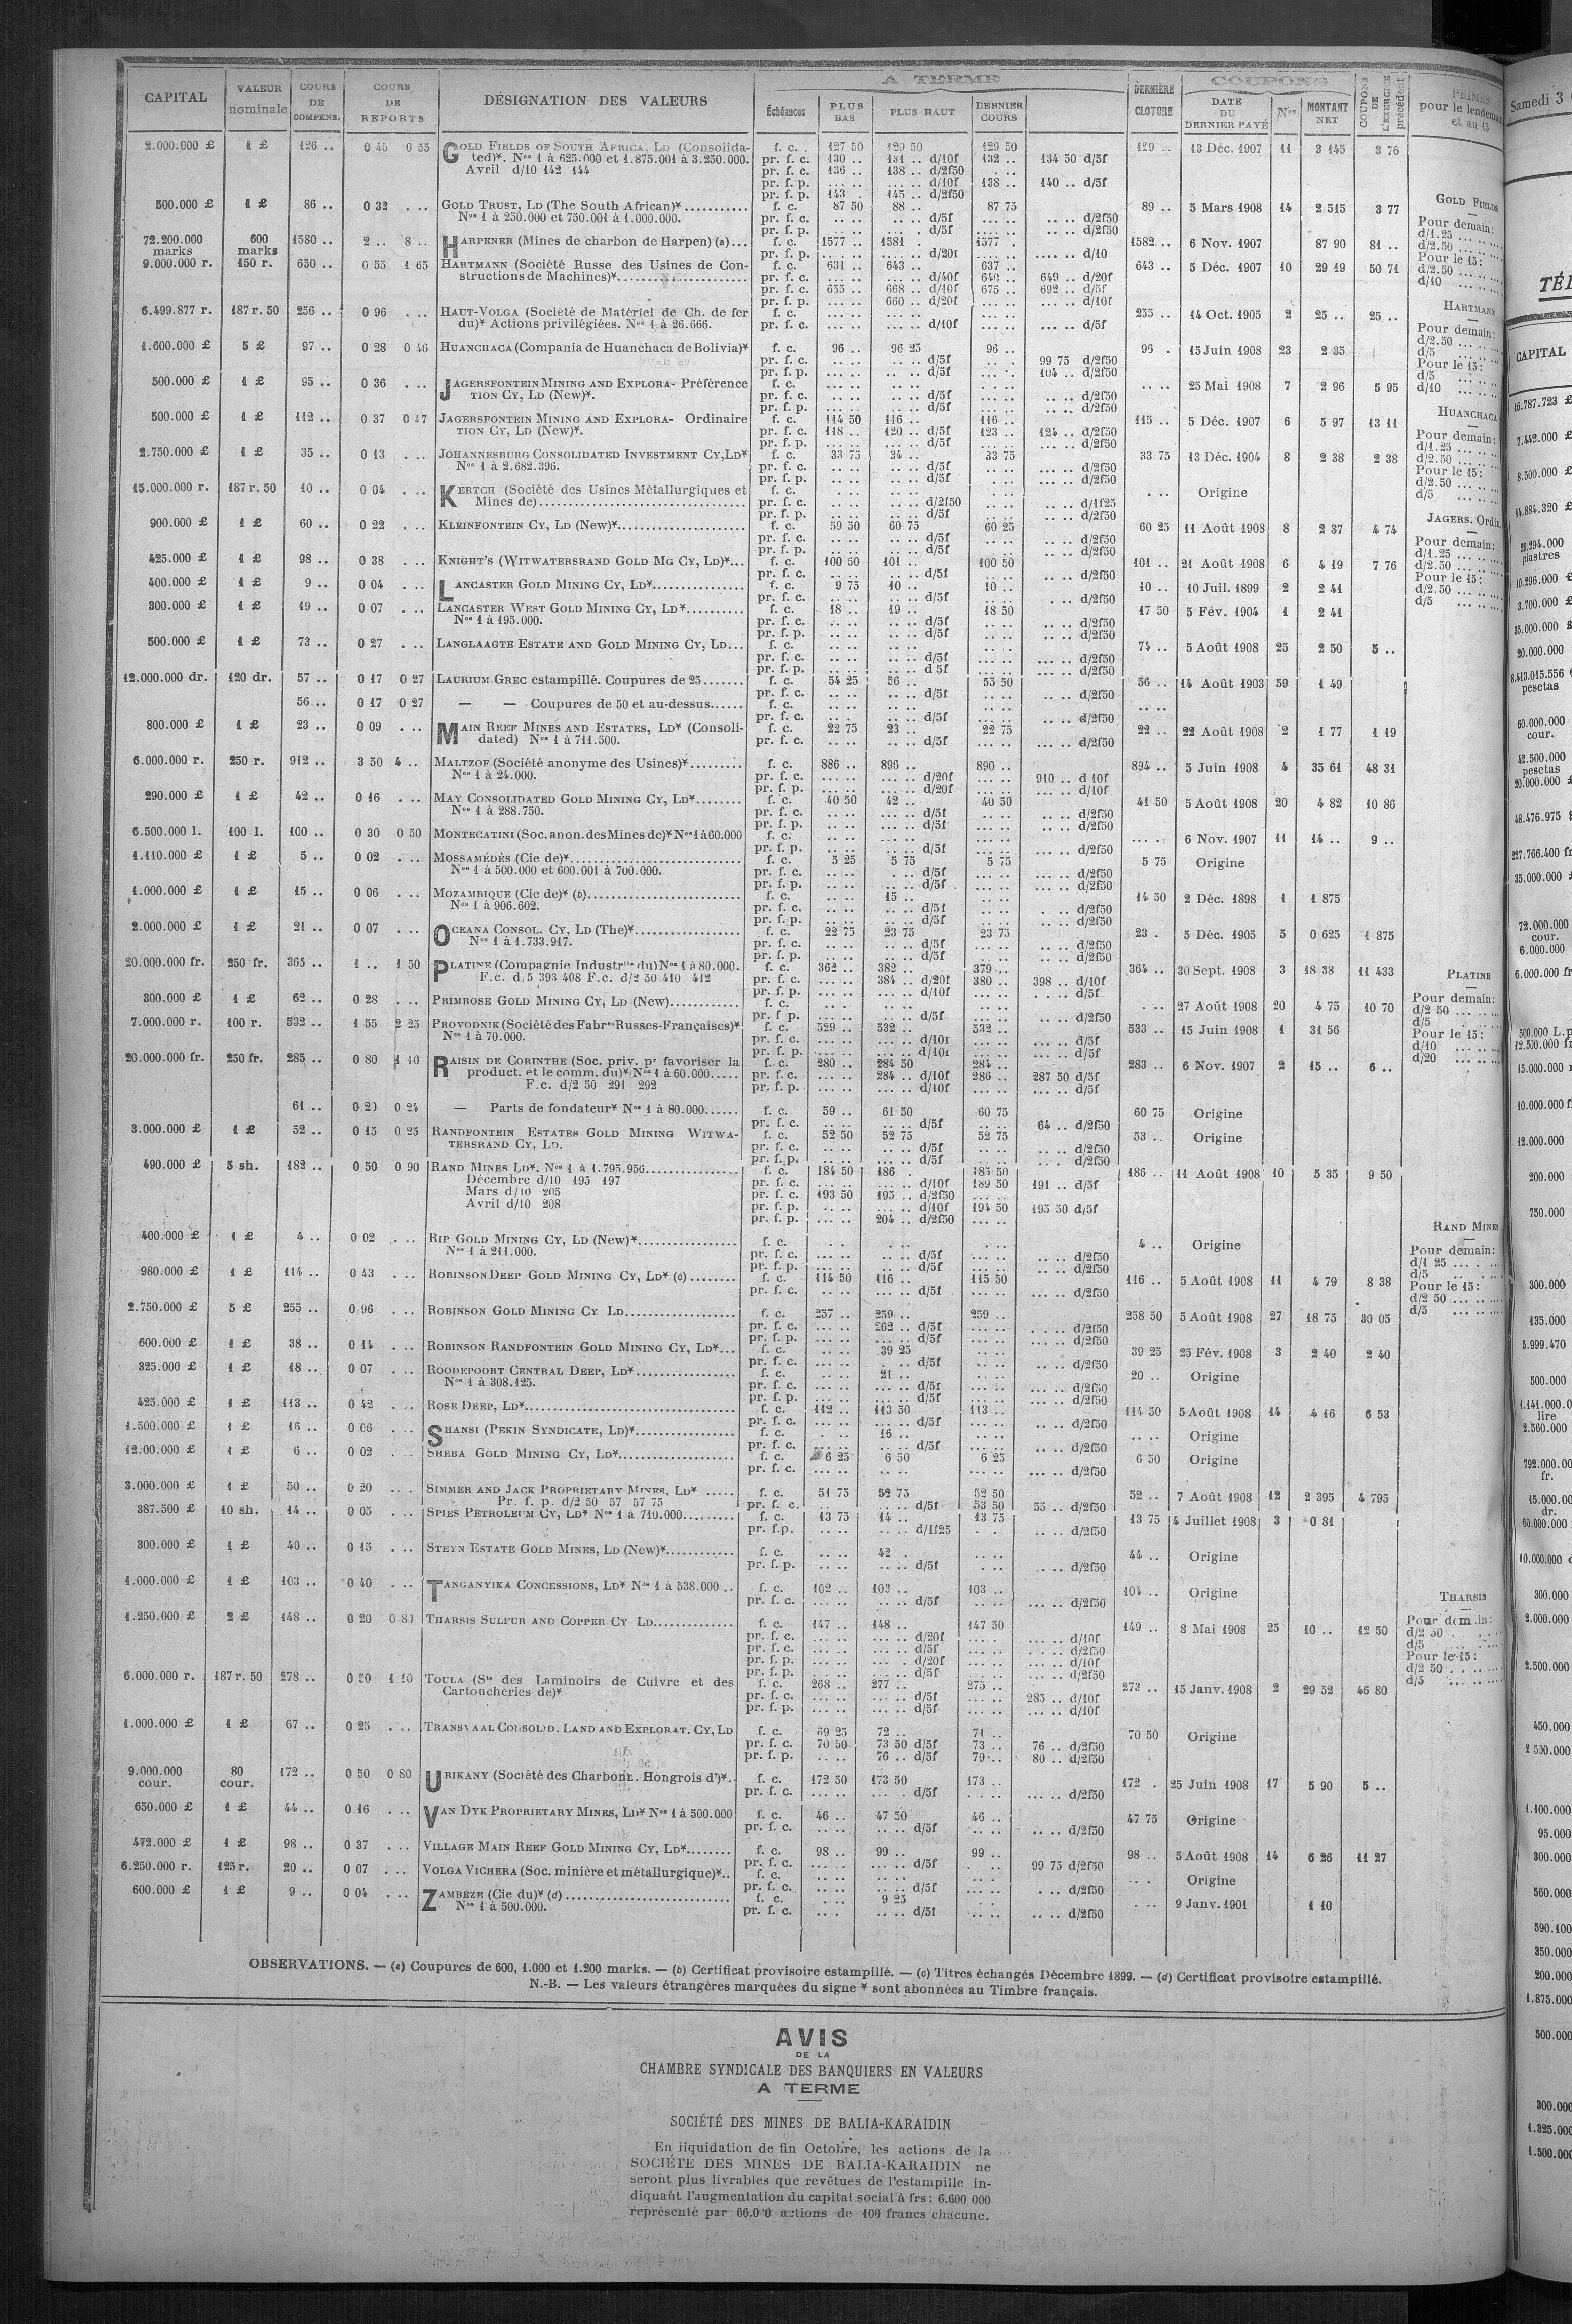 CAPITAL VALEUR nominale COURS DE COMPENS. COURS DE REPORTS DÉSIGNATION DES VALEURS A TERME Échéances PLUS BAS PLUS HAUT DERNIER COURS DERNIÈRE CLOTURE COUPONS DATE DU DERNIER PAYÉ Nos MONTANT NET COUPONS DE L'EXERCICE précédent
2.000.000 £ 1 £ 126 .. 0 45 0 55 GOLD FIELDS OF SOUTH AFRICA, LD (Consolida- f. c. 127 50 129 50 129 50 129 .. 13 Déc. 1907 11 3 145 3 76
ted)*. Nos 1 à 625.000 et 1.875.001 à 3.250.000. pr. f. c. 130 .. 131 .. d/10f 132 .. 134 50 d/5f
Avril d/10 142 144 pr. f. c. 136 .. 138 .. d/2f50
pr. f. p. d/10f 138 .. 140 .. d/5f
pr. f. p. 143 145 .. d/2f50
500.000 £ 1 £ 86 .. 0 32 GOLD TRUST, LD (The South African)* f. c. 87 50 88 .. 87 75 89 .. 5 Mars 1908 14 2 515 3 77
Nos 1 à 250.000 et 750.001 à 1.000.000. pr. f. c. d/5f d/2f50
72.200.000 marks 600 marks 1580 .. 2 .. 8 .. HARPENER (Mines de charbon de Harpen) (a) f. c. 1577 .. 1581 1577 1582 .. 6 Nov. 1907 87 90 81 ..
9.000.000 r. 150 r. 650 .. 0 55 1 65 HARTMANN (Société Russe des Usines de Con- f. c. 631 .. 643 .. 637 .. 643 .. 5 Déc. 1907 10 29 19 50 71
structions de Machines)* pr. f. c. d/40f 640 .. 649 .. d/20f
pr. f. c. 655 .. 668 .. d/10f 675 .. 692 .. d/5f
pr. f. p. 660 .. d/20f d/10f
6.499.877 r. 187 r. 50 256 .. 0 96 HAUT-VOLGA (Société de Matériel de Ch. de fer f. c. 255 .. 14 Oct. 1905 2 25 .. 25 ..
du)* Actions privilégiées. Nos 1 à 26.666. pr. f. c. d/10f d/5f
1.600.000 £ 5 £ 97 .. 0 28 0 46 HUANCHACA (Compania de Huanchaca de Bolivia)* f. c. 96 .. 96 25 96 .. 96 . 15 Juin 1908 23 2 35
pr. f. c. d/5f 99 75 d/2f50
pr. f. p. d/5f 104 .. d/2f50
500.000 £ 1 £ 95 .. 0 36 JAGERSFONTEIN MINING AND EXPLORA- Préférence f. c. 25 Mai 1908 7 2 96 5 95
TION CY, LD (New)*. pr. f. c. d/5f d/2f50
500.000 £ 1 £ 112 .. 0 37 0 47 JAGERSFONTEIN MINING AND EXPLORA- Ordinaire f. c. 114 50 116 .. 116 .. 115 .. 5 Déc. 1907 6 5 97 13 11
TION CY, LD (New)*. pr. f. c. 118 .. 120 .. d/5f 123 .. 124 .. d/2f50
2.750.000 £ 1 £ 35 .. 0 13 JOHANNESBURG CONSOLIDATED INVESTMENT CY, LD* f. c. 33 75 34 .. 33 75 33 75 13 Déc. 1904 8 2 38 2 38
Nos 1 à 2.682.396. pr. f. c. d/5f d/2f50
15.000.000 r. 187 r. 50 10 .. 0 04 KERTCH (Société des Usines Métallurgiques et f. c. Origine
Mines de) pr. f. c. d/2f50 d/1f25
900.000 £ 1 £ 60 .. 0 22 KLEINFONTEIN CY, LD (New)* f. c. 59 50 60 75 60 25 60 25 11 Août 1908 8 2 37 4 74
425.000 £ 1 £ 98 .. 0 38 KNIGHT'S (WITWATERSRAND GOLD MG CY, LD)* f. c. 100 50 101 .. 100 50 101 .. 21 Août 1908 6 4 19 7 76
400.000 £ 1 £ 9 .. 0 04 LANCASTER GOLD MINING CY, LD* f. c. 9 75 10 .. 10 .. 10 .. 10 Juil. 1899 2 2 41
300.000 £ 1 £ 19 .. 0 07 LANCASTER WEST GOLD MINING CY, LD* f. c. 18 .. 19 .. 18 50 17 50 5 Fév. 1904 1 2 41
Nos 1 à 195.000. pr. f. c. d/5f d/2f50
500.000 £ 1 £ 73 .. 0 27 LANGLAAGTE ESTATE AND GOLD MINING CY, LD f. c. 74 .. 5 Août 1908 25 2 50 5 ..
12.000.000 dr. 120 dr. 57 .. 0 17 0 27 LAURIUM GREC estampillé. Coupures de 25 f. c. 54 25 56 .. 55 50 56 .. 14 Août 1903 59 1 49
56 .. 0 17 0 27 — — Coupures de 50 et au-dessus
800.000 £ 1 £ 23 .. 0 09 MAIN REEF MINES AND ESTATES, LD* (Consoli- f. c. 22 75 23 .. 22 75 22 .. 22 Août 1908 2 1 77 1 19
dated) Nos 1 à 711.500. pr. f. c. d/5f d/2f50
6.000.000 r. 250 r. 912 .. 3 50 4 .. MALTZOF (Société anonyme des Usines)* f. c. 886 .. 896 .. 890 .. 894 .. 5 Juin 1908 4 35 61 48 31
Nos 1 à 24.000. pr. f. c. d/20f 910 .. d 10f
290.000 £ 1 £ 42 .. 0 16 MAY CONSOLIDATED GOLD MINING CY, LD* f. c. 40 50 42 .. 40 50 41 50 5 Août 1908 20 4 82 10 86
Nos 1 à 288.750. pr. f. c. d/5f d/2f50
6.500.000 l. 100 l. 100 .. 0 30 0 50 MONTECATINI (Soc. anon. des Mines de)* Nos 1 à 60.000 f. c. 6 Nov. 1907 11 14 .. 9 ..
1.110.000 £ 1 £ 5 .. 0 02 MOSSAMÉDÈS (Cie de)* f. c. 5 25 5 75 5 75 5 75 Origine
Nos 1 à 500.000 et 600.001 à 700.000. pr. f. c. d/5f d/2f50
1.000.000 £ 1 £ 15 .. 0 06 MOZAMBIQUE (Cie de)* (b) f. c. 15 .. 14 50 2 Déc. 1898 1 1 875
Nos 1 à 906.602. pr. f. c. d/5f d/2f50
2.000.000 £ 1 £ 21 .. 0 07 OCEANA CONSOL. CY, LD (The)* f. c. 22 75 23 75 23 75 23 . 5 Déc. 1905 5 0 625 1 875
Nos 1 à 1.733.917. pr. f. c. d/5f d/2f50
20.000.000 fr. 250 fr. 365 .. 1 .. 1 50 PLATINE (Compagnie Industrlle du) Nos 1 à 80.000. f. c. 362 .. 382 .. 379 .. 364 .. 30 Sept. 1908 3 18 38 11 433
F.c. d/5 393 408 F.c. d/2 50 410 412 pr. f. c. 384 .. d/20f 380 .. 398 .. d/10f
300.000 £ 1 £ 62 .. 0 28 PRIMROSE GOLD MINING CY, LD (New) f. c. 27 Août 1908 20 4 75 10 70
7.000.000 r. 100 r. 532 .. 1 55 2 25 PROVODNIK (Société des Fabres Russes-Françaises)* f. c. 529 .. 532 .. 532 .. 533 .. 15 Juin 1908 1 31 56
Nos 1 à 70.000. pr. f. c. d/10f d/5f
20.000.000 fr. 250 fr. 285 .. 0 80 1 10 RAISIN DE CORINTHE (Soc. priv. pr favoriser la f. c. 280 .. 284 50 284 .. 283 .. 6 Nov. 1907 2 15 .. 6 ..
product. et le comm. du)* Nos 1 à 60.000 pr. f. c. 284 .. d/10f 286 .. 287 50 d/5f
F.c. d/2 50 291 292 pr. f. p. d/10f d/5f
61 .. 0 20 0 24 — Parts de fondateur* Nos 1 à 80.000 f. c. 59 .. 61 50 60 75 60 75 Origine
pr. f. c. d/5f 64 .. d/2f50
3.000.000 £ 1 £ 52 .. 0 15 0 25 RANDFONTEIN ESTATES GOLD MINING WITWA- f. c. 52 50 52 75 52 75 53 .. Origine
TERSRAND CY, LD. pr. f. c. d/5f d/2f50
490.000 £ 5 sh. 182 .. 0 50 0 90 RAND MINES LD*. Nos 1 à 1.795.956 f. c. 184 50 186 185 50 186 .. 11 Août 1908 10 5 35 9 50
Décembre d/10 195 197 pr. f. c. d/10f 189 50 191 .. d/5f
Mars d/10 205 pr. f. c. 193 50 195 .. d/2f50
Avril d/10 208 pr. f. p. d/10f 194 50 195 50 d/5f
pr. f. p. 204 .. d/2f50
400.000 £ 1 £ 4 .. 0 02 RIP GOLD MINING CY, LD (New)* f. c. 4 .. Origine
Nos 1 à 211.000. pr. f. c. d/5f d/2f50
980.000 £ 1 £ 114 .. 0 43 ROBINSON DEEP GOLD MINING CY, LD* (c) f. c. 114 50 116 .. 115 50 116 .. 5 Août 1908 11 4 79 8 38
2.750.000 £ 5 £ 255 .. 0 96 ROBINSON GOLD MINING CY LD f. c. 257 .. 259 .. 259 .. 258 50 5 Août 1908 27 18 75 30 05
pr. f. c. 262 .. d/5f d/2f50
600.000 £ 1 £ 38 .. 0 14 ROBINSON RANDFONTEIN GOLD MINING CY, LD* f. c. 39 25 39 25 25 Fév. 1908 3 2 40 2 40
325.000 £ 1 £ 18 .. 0 07 ROODEPOORT CENTRAL DEEP, LD* f. c. 21 .. 20 .. Origine
Nos 1 à 308.125. pr. f. c. d/5f d/2f50
425.000 £ 1 £ 113 .. 0 42 ROSE DEEP, LD* f. c. 112 .. 113 50 113 .. 114 50 5 Août 1908 14 4 16 6 53
1.500.000 £ 1 £ 16 .. 0 06 SHANSI (PEKIN SYNDICATE, LD)* f. c. 16 .. Origine
12.00.000 £ 1 £ 6 .. 0 02 SHEBA GOLD MINING CY, LD* f. c. 6 25 6 50 6 25 6 50 Origine
3.000.000 £ 1 £ 50 .. 0 20 SIMMER AND JACK PROPRIETARY MINES, LD* f. c. 51 75 52 75 52 50 52 .. 7 Août 1908 12 2 395 4 795
Pr. f. p. d/2 50 57 57 75 pr. f. c. d/5f 53 50 55 .. d/2f50
387.500 £ 10 sh. 14 .. 0 05 SPIES PETROLEUM CY, LD* Nos 1 à 710.000 f. c. 13 75 14 .. 13 75 13 75 4 Juillet 1908 3 0 81
pr. f. p. d/1f25 d/2f50
300.000 £ 1 £ 40 .. 0 15 STEYN ESTATE GOLD MINES, LD (New)* f. c. 42 . 44 .. Origine
1.000.000 £ 1 £ 103 .. 0 40 TANGANYIKA CONCESSIONS, LD* Nos 1 à 538.000 f. c. 102 .. 103 .. 103 .. 104 .. Origine
1.250.000 £ 2 £ 148 .. 0 20 THARSIS SULFUR AND COPPER CY LD f. c. 147 .. 148 .. 147 50 149 .. 8 Mai 1908 25 10 .. 12 50
6.000.000 r. 187 r. 50 278 .. 0 50 1 10 TOULA (Sté des Laminoirs de Cuivre et des f. c. 268 .. 277 .. 275 .. 273 .. 15 Janv. 1908 2 29 52 46 80
Cartoucheries de)* pr. f. c. d/5f 285 .. d/10f
1.000.000 £ 1 £ 67 .. 0 25 TRANSVAAL CONSOLID. LAND AND EXPLORAT. CY, LD f. c. 69 25 72 .. 71 .. 70 50 Origine
pr. f. c. 70 50 73 50 d/5f 73 .. 76 .. d/2f50
pr. f. p. 76 .. d/5f 79 .. 80 .. d/2f50
9.000.000 cour. 80 cour. 172 .. 0 50 0 80 URIKANY (Société des Charbonn. Hongrois d')* f. c. 172 50 173 50 173 .. 172 . 25 Juin 1908 17 5 90 5 ..
650.000 £ 1 £ 44 .. 0 16 VAN DYK PROPRIETARY MINES, LD* Nos 1 à 500.000 f. c. 46 .. 47 50 46 .. 47 75 Origine
472.000 £ 1 £ 98 .. 0 37 VILLAGE MAIN REEF GOLD MINING CY, LD* f. c. 98 .. 99 .. 99 .. 98 .. 5 Août 1908 14 6 26 11 27
pr. f. c. d/5f 99 75 d/2f50
6.250.000 r. 125 r. 20 .. 0 07 VOLGA VICHERA (Soc. minière et métallurgique)* f. c. Origine
600.000 £ 1 £ 9 .. 0 04 ZAMBÈZE (Cie du)* (d) f. c. 9 25 9 Janv. 1901 1 10
Nos 1 à 500.000. pr. f. c. d/5f d/2f50
PRIMES
pour le lendemain
et au 15
GOLD FIELDS
Pour demain:
d/1.25
d/2.50
Pour le 15:
d/2.50
d/10
HARTMANN
Pour demain:
d/2.50
d/5
Pour le 15:
d/5
d/10
HUANCHACA
Pour demain:
d/1.25
d/2.50
Pour le 15:
d/2.50
d/5
JAGERS. Ordin.
Pour demain:
d/1.25
d/2.50
Pour le 15:
d/2.50
d/5
PLATINE
Pour demain:
d/2 50
d/5
Pour le 15:
d/10
d/20
RAND MINES
Pour demain:
d/1 25
d/5
Pour le 15:
d/2 50
d/5
THARSIS
Pour demain:
d/2 50
d/5
Pour le 15:
d/2 50
d/5
OBSERVATIONS. — (a) Coupures de 600, 1.000 et 1.200 marks. — (b) Certificat provisoire estampillé. — (c) Titres échangés Décembre 1899. — (d) Certificat provisoire estampillé.
N.-B. — Les valeurs étrangères marquées du signe * sont abonnées au Timbre français.
AVIS
DE LA
CHAMBRE SYNDICALE DES BANQUIERS EN VALEURS
A TERME
SOCIÉTÉ DES MINES DE BALIA-KARAIDIN
En liquidation de fin Octobre, les actions de la
SOCIÉTÉ DES MINES DE BALIA-KARAIDIN ne
seront plus livrables que revêtues de l'estampille in-
diquant l'augmentation du capital social à frs: 6.600 000
représenté par 66.000 actions de 100 francs chacune.
Samedi 3
CAPITAL
16.787.723 £
7.442.000 £
8.500.000 £
14.884.320 £
piastres
10.296.000 £
3.700.000 £
35.000.000
20.000.000
pesetas
60.000.000
cour.
12.500.000
pesetas
20.000.000
18.476.975
227.766.400 fr
35.000.000
72.000.000
cour.
6.000.000
6.000.000 fr
500.000 L.
12.500.000 fr
15.000.000
10.000.000 f
12.000.000
200.000
750.000
300.000
135.000
5.999.470
500.000
lire
2.560.000
fr.
dr.
60.000.000
10.000.000
300.000
2.000.000
2.500.000
450.000
2 500.000
1.100.000
95.000
300.000
560.000
590.100
350.000
200.000
1.875.000
500.000
300.000
1.325.000
1.500.000